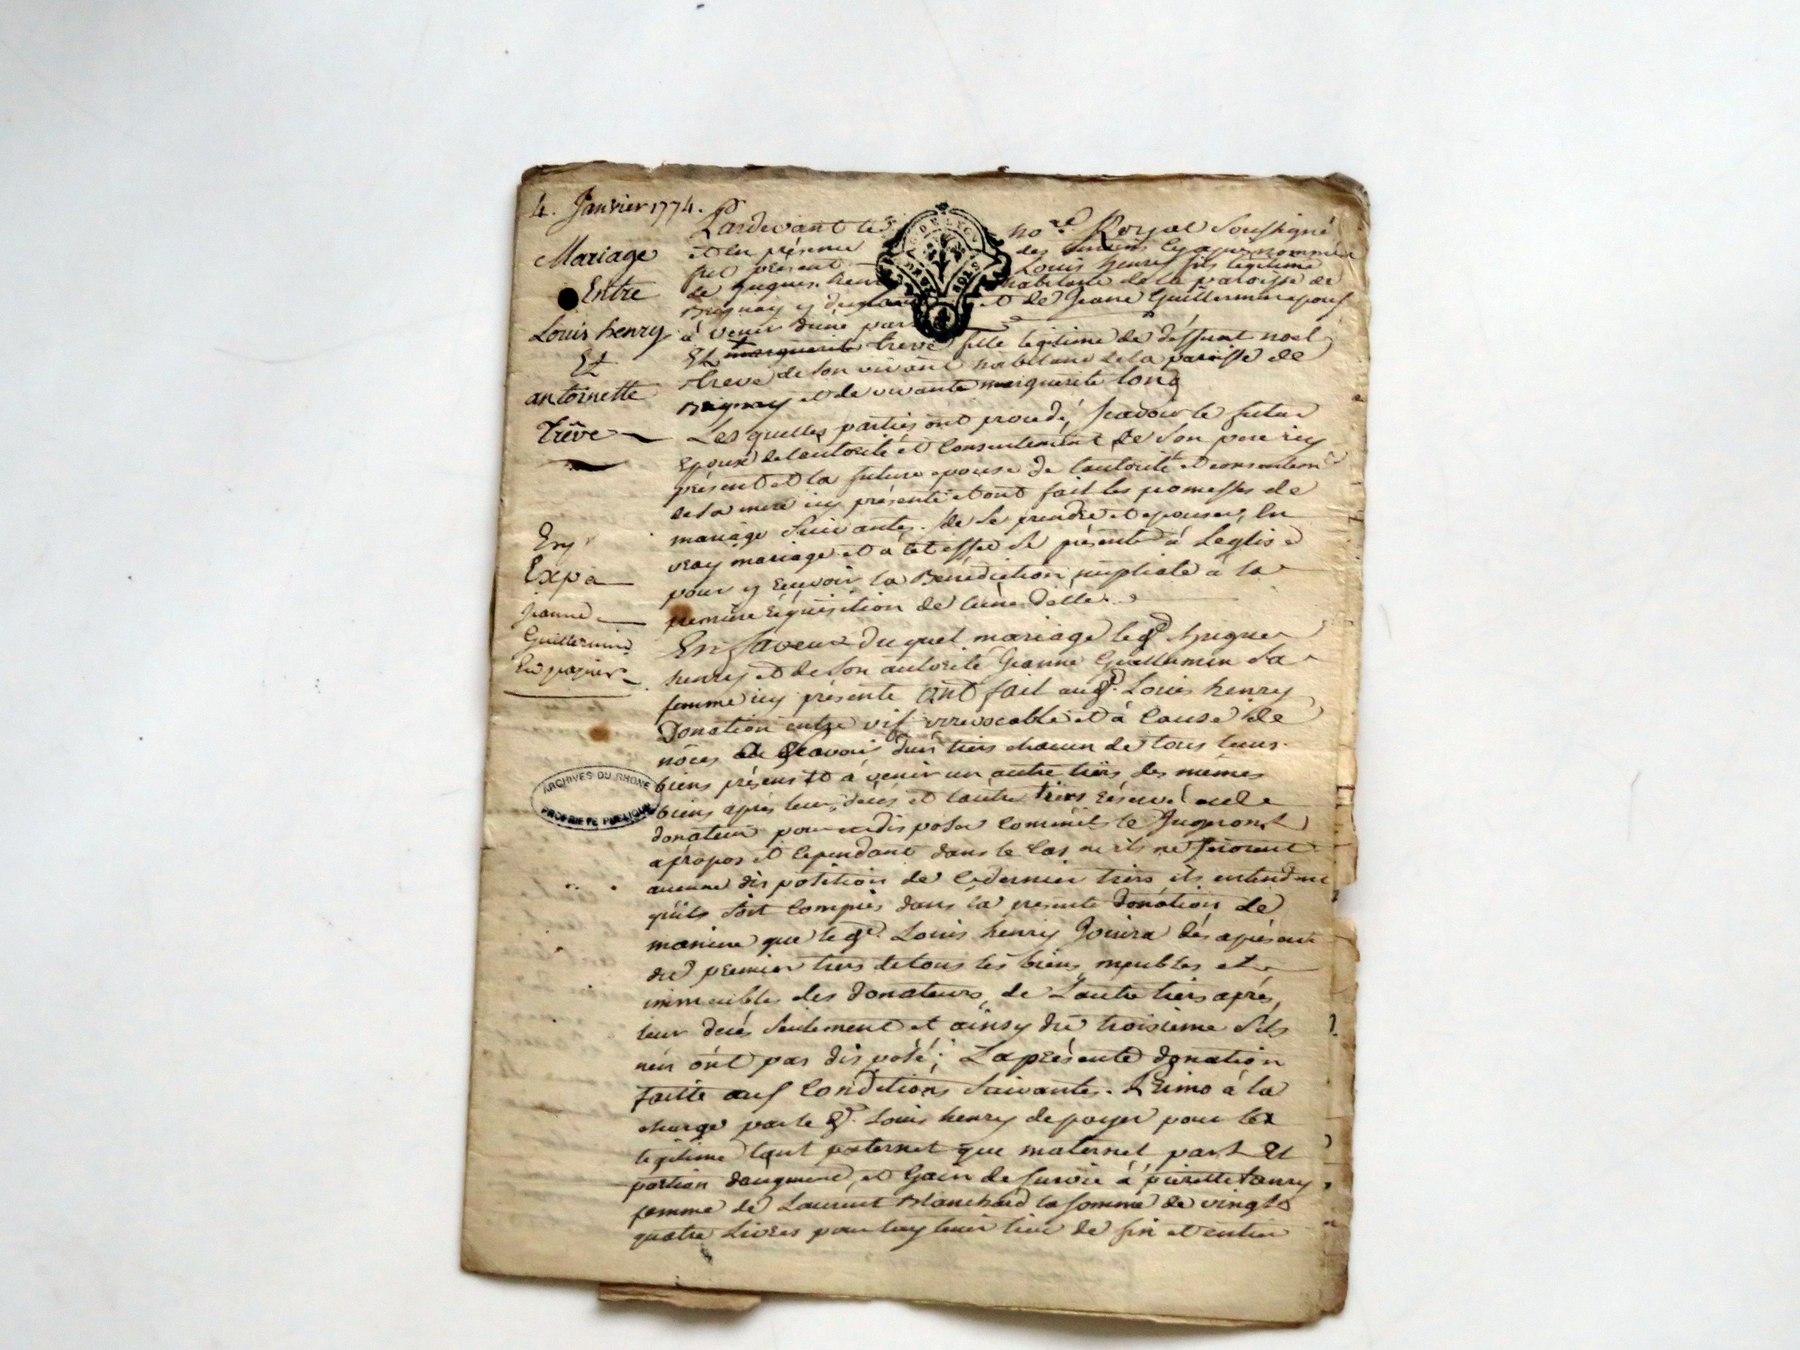 4. Janvier 1774.
Mariage
Entre
Louis henry
Et
antoinette
Trêve
Exp a
jeanne
Guillermin
En papier
ARCHIVES DU RHONE
PROPRIETE PUBLIQUE
Pardevant le no.re Royal Soussigné
et en présence des temoins cy apres nommés
fut présent Louis henry fils légitime
de hugues henry habitant de la paroisse de
et de Jeane Guillermin epouf
à venir dune part
Et marguerite treve fille legitime de deffunt noel
treve de son vivant habitant de la paroisse de
et de vivante marguerite long
Les quelles parties ont procedé, scavoir le futur
Epoux de lautorité et Consentement de Son pere icy
présent et la future epouse de lautorité et consentemt
de sa mere icy présente et ont fait les promesses de
mariage Suivantes. de Se prendre et epouser, En
vray mariage et a cet effet Se présenter à Leglise
pour y Recevoir la Bénédiction nuptiale à la
premiere Réquisition de lune delles.
En faveur du quel mariage le d. hugues
henry et de Son autorité Jeanne Guillermin Sa
femme icy présente ont fait au d. Louis henry
Donation entre vif irrevocable et à Cause de
nôces de Scavoir du tiers chacun de tous leurs
biens présens et à venir un autre tiers des mêmes
biens après leur décés et lautre tiers réservé aud.
donateur pour en disposer Comme ils le Jugeront
apropos et Cependant dans le Cas ou ils ne feroient
aucune disposition de Ce dernier tiers ils entendent
quils Soit Compris dans la présente donation de
maniere que le d. Louis henry Jouira dès aprésent
du premier tiers de tous les biens meubles et
immeubles des donateurs, de Lautre tiers après
leur décés Seulement et ainsy du troisieme Sils
nen ont pas disposé; La présente donation
faitte aux Conditions Suivantes. Primo à la
charge par le d. Louis henry de payer pour les
legitime tant paternel que maternel part Et
portion daugment, et Gain de Survie à pierrette henry
femme de Laurent Blanchard la Somme de vingt
quatre Livres pour luy tenir lieu de fin et entier